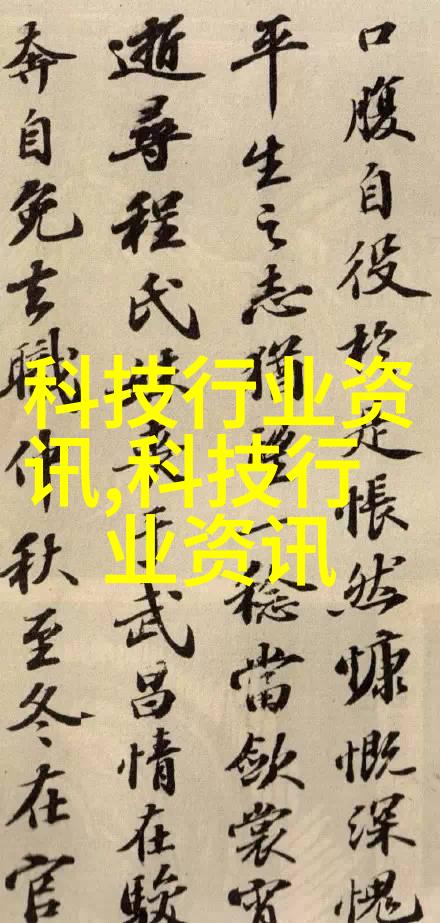 口腹自役於是悵然慷慨深愧
平生之志猶望一稔當斂裳宵
逝尋程氏妹喪于武昌情在駿
奔自免去職仲秋至冬在官
科技行业资
讯,科技行
业资讯